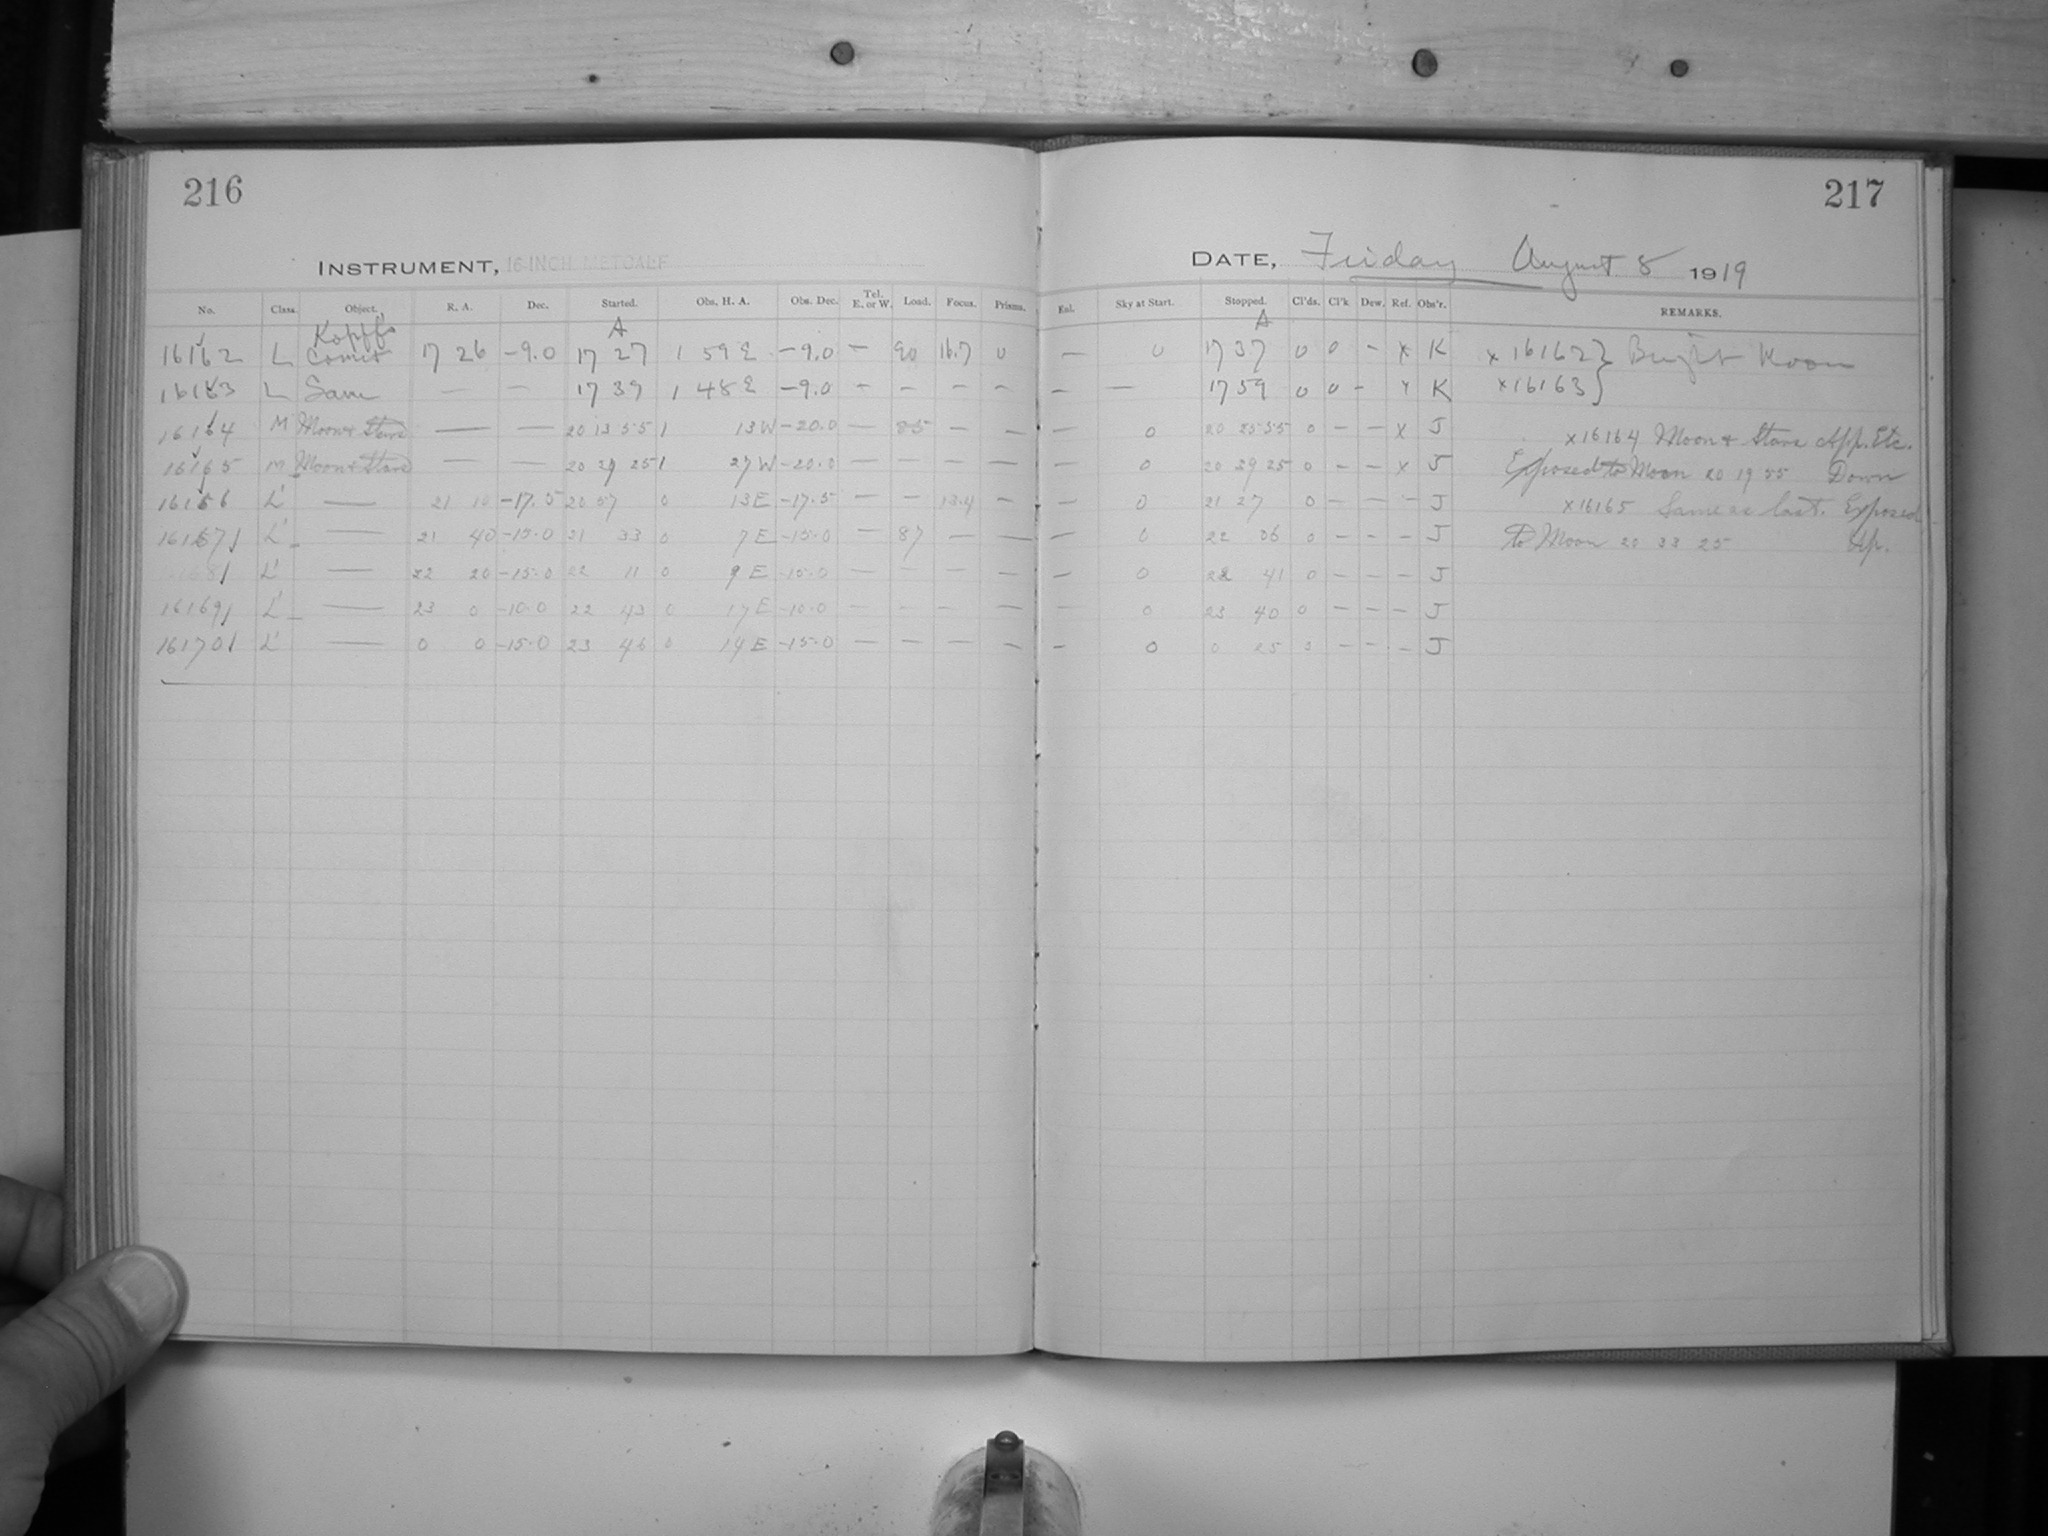 216
217
INSTRUMENT, 16-INCH METCALF
DATE, Friday August 8 1919
No. Class. Object. R. A. Dec. Started. Obs. H. A. Obs. Dec. Tel. E. or W. Load. Focus. Prisms. Enl. Sky at Start. Stopped. Cl'ds. Cl'k Dew. Ref. Obs'r. REMARKS.
Kopff's A A
16162 L Comet 17 26 -9.0 17 27 1 59 E -9.0 — 90 16.7 0 — 0 17 37 0 0 - x K x 16162 } Bright Moon
16163 L Same — — 17 39 1 48 E -9.0 - - - - - — 17 59 0 0 - x K x 16163 }
16164 M Moon & Stars — — 20 13 55 1 13 W -20.0 — 85 - - - 0 20 25 55 0 - - x J x 16164 Moon & Stars App. Etc.
16165 M Moon & Stars — — 20 29 25 1 27 W -20.0 — — — — — 0 20 39 25 0 - - x J Exposed to Moon 20 19 55 Down
16166 L' — 21 10 -17.5 20 57 0 13 E -17.5 — - 13.4 — - 0 21 27 0 - - - J x 16165 Same as last. Exposed
16167 L' — 21 40 -15.0 21 33 0 7 E -15.0 — 87 — — — 0 22 06 0 - - - J to Moon 20 33 25 Up.
L' — 22 20 -15.0 22 11 0 9 E -15.0 — — — — — 0 22 41 0 - - - J
16169 L' — 23 0 -10.0 22 43 0 17 E -10.0 — - - — — 0 23 40 0 - - - J
16170 L' — 0 0 -15.0 23 46 0 14 E -15.0 — — — - - 0 0 25 0 - - - J